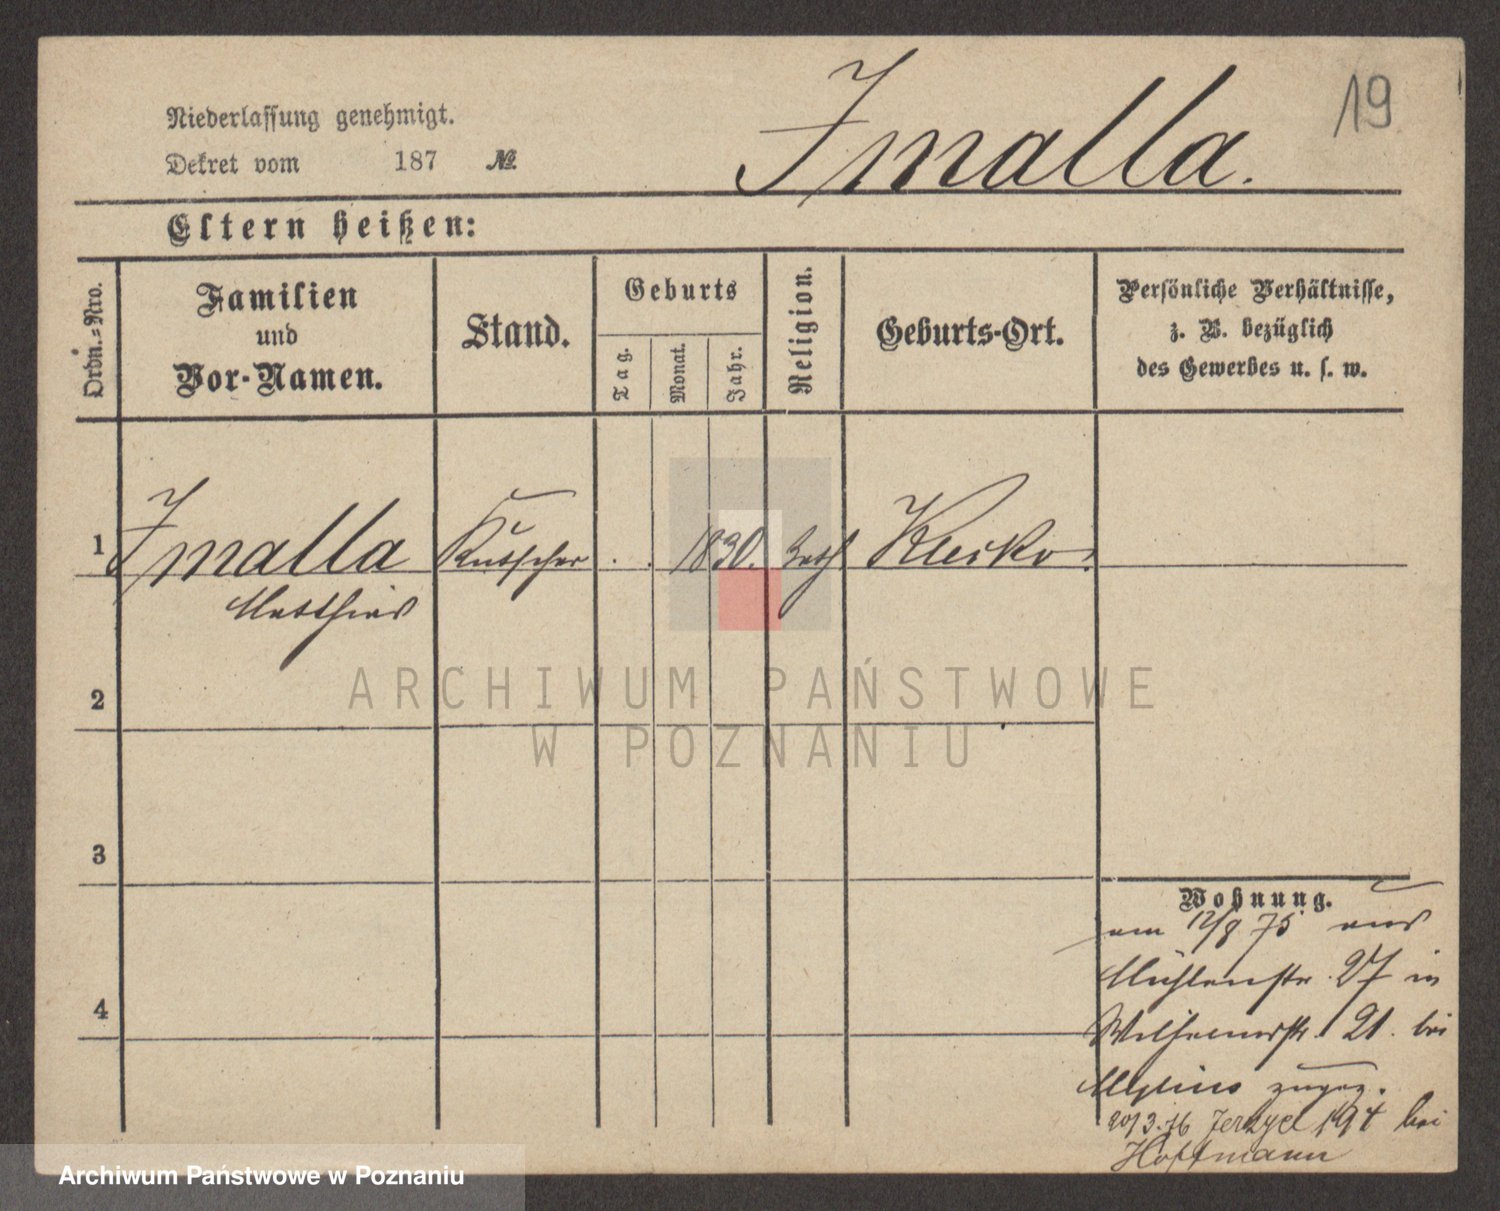 19
Niederlassung genehmigt.
Dekret vom 187 №
Jmalla.
Eltern heißen:
Ordn.-Nro.
Familien
und
Vor-Namen.
Stand.
Geburts
Tag.
Monat.
Jahr.
Religion.
Geburts-Ort.
Persönliche Verhältnisse,
z. B. bezüglich
des Gewerbes u. s. w.
1 Jmalla Kutscher . . 1830. kath
Matthias
ARCHIWUM PAŃSTWOWE
W POZNANIU
2
3
4
Wohnung.
am 12/8 75 aus
Mühlenstr. 27 in
Wilhelmstr. 21. bei
zugez.
20/3.76 Jerzyce 194 bei
Hoffmann
Archiwum Państwowe w Poznaniu